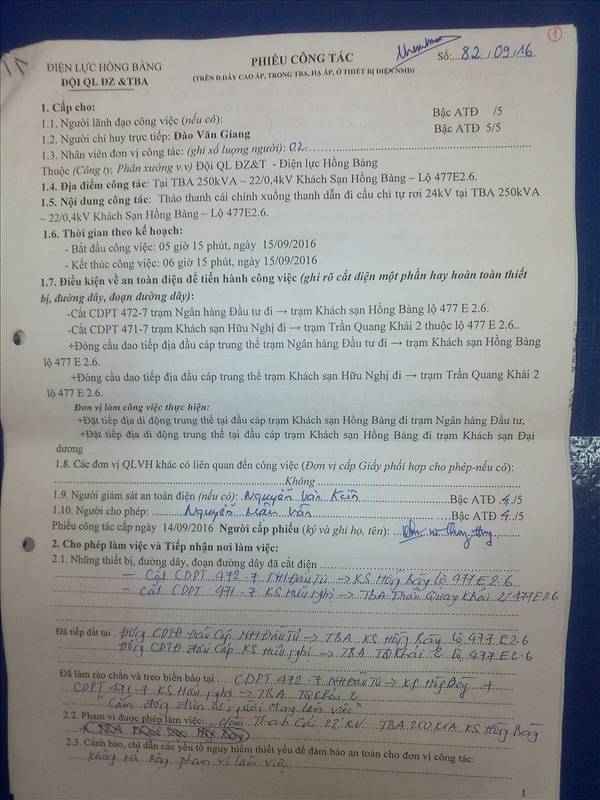 1
ĐIỆN LỰC HỒNG BÀNG
ĐỘI QL ĐZ &TBA
PHIẾU CÔNG TÁC
(TRÊN Đ.DÂY CAO ÁP, TRONG TBA, HẠ ÁP, Ở THIẾT BỊ ĐIỆN NMĐ)
Số:...82../09./16
1. Cấp cho:
1.1. Người lãnh đạo công việc (nếu có): Bậc ATĐ /5
1.2. Người chỉ huy trực tiếp: Đào Văn Giang Bậc ATĐ 5/5
1.3. Nhân viên đơn vị công tác: (ghi số lượng người): 02
Thuộc (Công ty, Phân xưởng v.v) Đội QL ĐZ&T - Điện lực Hồng Bàng
1.4. Địa điểm công tác: Tại TBA 250kVA – 22/0,4kV Khách Sạn Hồng Bàng – Lộ 477E2.6.
1.5. Nội dung công tác: Tháo thanh cái chính xuống thanh dẫn đi cầu chì tự rơi 24kV tại TBA 250kVA
– 22/0,4kV Khách Sạn Hồng Bàng – Lộ 477E2.6.
1.6. Thời gian theo kế hoạch:
- Bắt đầu công việc: 05 giờ 15 phút, ngày 15/09/2016
- Kết thúc công việc: 06 giờ 15 phút, ngày 15/09/2016
1.7. Điều kiện về an toàn điện để tiến hành công việc (ghi rõ cắt điện một phần hay hoàn toàn thiết
bị, đường dây, đoạn đường dây):
-Cắt CDPT 472-7 trạm Ngân hàng Đầu tư đi → trạm Khách sạn Hồng Bàng lộ 477 E 2.6.
-Cắt CDPT 471-7 trạm Khách sạn Hữu Nghị đi → trạm Trần Quang Khải 2 thuộc lộ 477 E 2.6..
+Đóng cầu dao tiếp địa đầu cáp trung thế trạm Ngân hàng Đầu tư đi → trạm Khách sạn Hồng Bàng
lộ 477 E 2.6.
+Đóng cầu dao tiếp địa đầu cáp trung thế trạm Khách sạn Hữu Nghị đi → trạm Trần Quang Khải 2
lộ 477 E 2.6.
Đơn vị làm công việc thực hiện:
+Đặt tiếp địa di động trung thế tại đầu cáp trạm Khách sạn Hồng Bàng đi trạm Ngân hàng Đầu tư,
+Đặt tiếp địa di động trung thế tại đầu cáp trạm Khách sạn Hồng Bàng đi trạm Khách sạn Đại
dương
1.8. Các đơn vị QLVH khác có liên quan đến công việc (Đơn vị cấp Giấy phối hợp cho phép-nếu có):
Không
1.9. Người giám sát an toàn điện (nếu có): Nguyễn Văn Kiên Bậc ATĐ 4./5
1.10. Người cho phép: Nguyễn Văn Bậc ATĐ 4./5
Phiếu công tác cấp ngày 14/09/2016 Người cấp phiếu (ký và ghi họ, tên):
2. Cho phép làm việc và Tiếp nhận nơi làm việc:
2.1. Những thiết bị, đường dây, đoạn đường dây đã cắt điện
- Cắt CDPT 472-7 NHĐầuTư → KS Hồng Bàng lộ 477 E 2.6
- Cắt CDPT 471-7 KS Hữu Nghị → TBA Trần Quang Khải 2 lộ 477E2.6
Đã tiếp đất tại Đóng CDTĐ Đầu Cáp NHĐầuTư → TBA KS Hồng Bàng lộ 477 E2.6
Đóng CDTĐ đầu Cáp KS Hữu nghị → TBA TQKhải 2 lộ 477 E2.6
Đã làm rào chắn và treo biển báo tại CDPT 472-7 NHĐầuTư → KS Hồng Bàng +
CDPT 471-7 KS Hữu nghị → TBA TQ Khải 2
"Cấm đóng điện có người đang làm việc"
2.2. Phạm vi được phép làm việc: Thanh Cái 22 KV TBA 250KVA KS Hồng Bàng
2.3. Cảnh báo, chỉ dẫn các yếu tố nguy hiểm thiết yếu để đảm bảo an toàn cho đơn vị công tác:
Không phạm vi làm việc
1